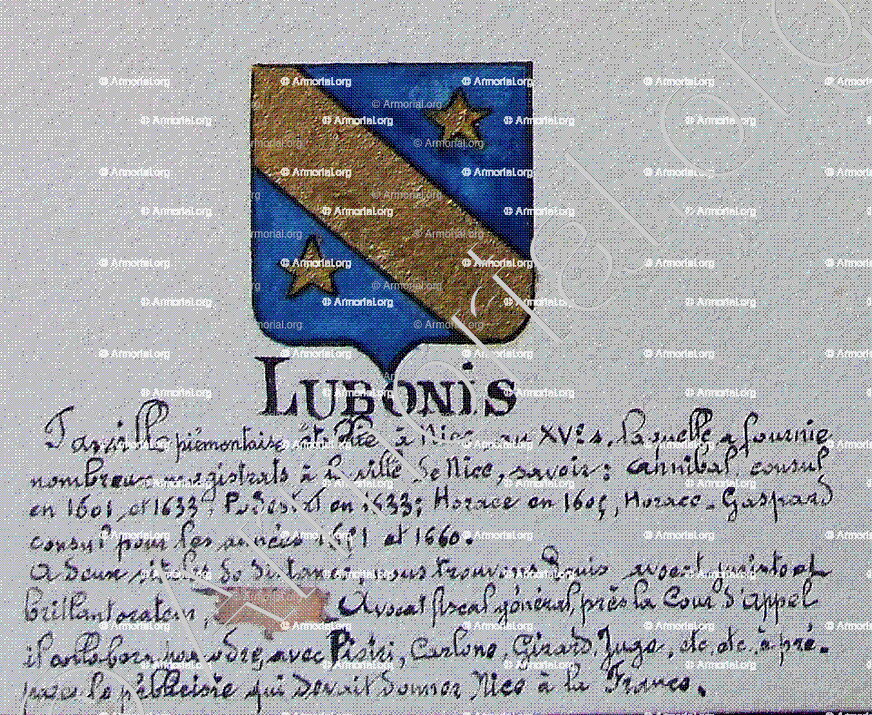 LUBONIS
Famille piémontaise établie à Nice au XVe s. laquelle a fournie
nombreux magistrats à la ville de Nice, savoir : Cannibal consul
en 1601 et 1633, Podestat en 1633; Horace en 1605, Horace-Gaspard
consul pour les années 1651 et 1660.
A deux siècles de distance nous trouvons Louis avocat juriste et
brillant orateur, Avocat fiscal général, près la Cour d'appel
il collabora avec Pisiri, Carlone, Girard, Juge, etc. etc. à pré-
parer le plébiscite qui devait donner Nice à la France.
© Armorial.org